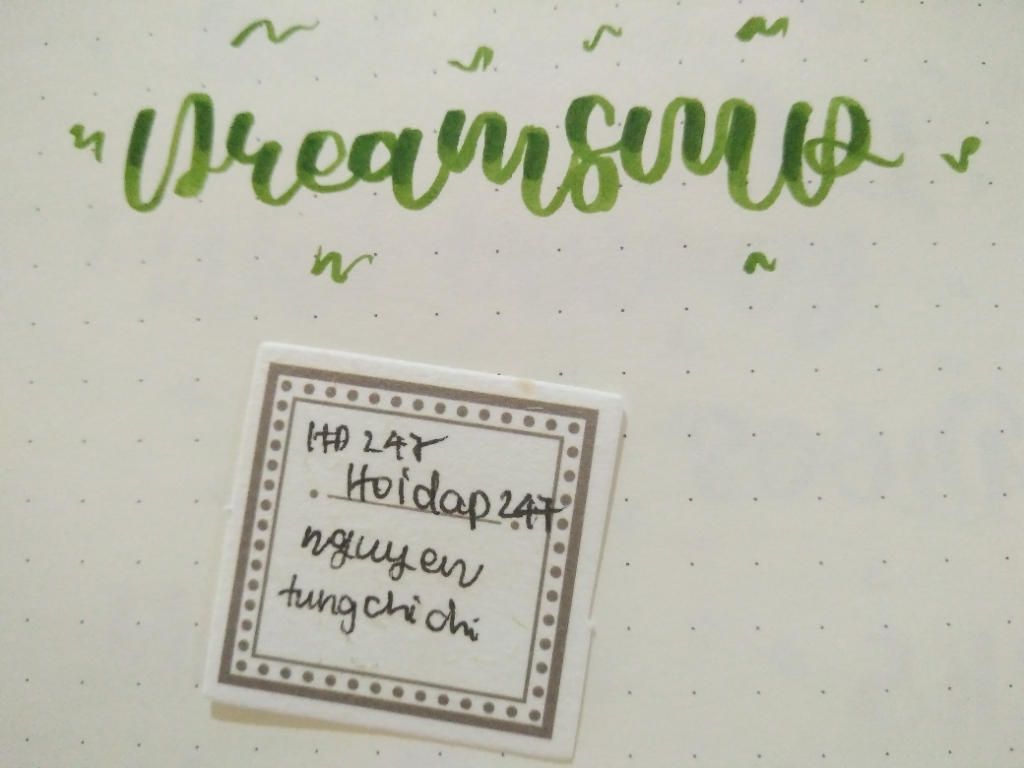 Dreamsmp
HD 247
Hoidap247
nguyen
tungchi chi